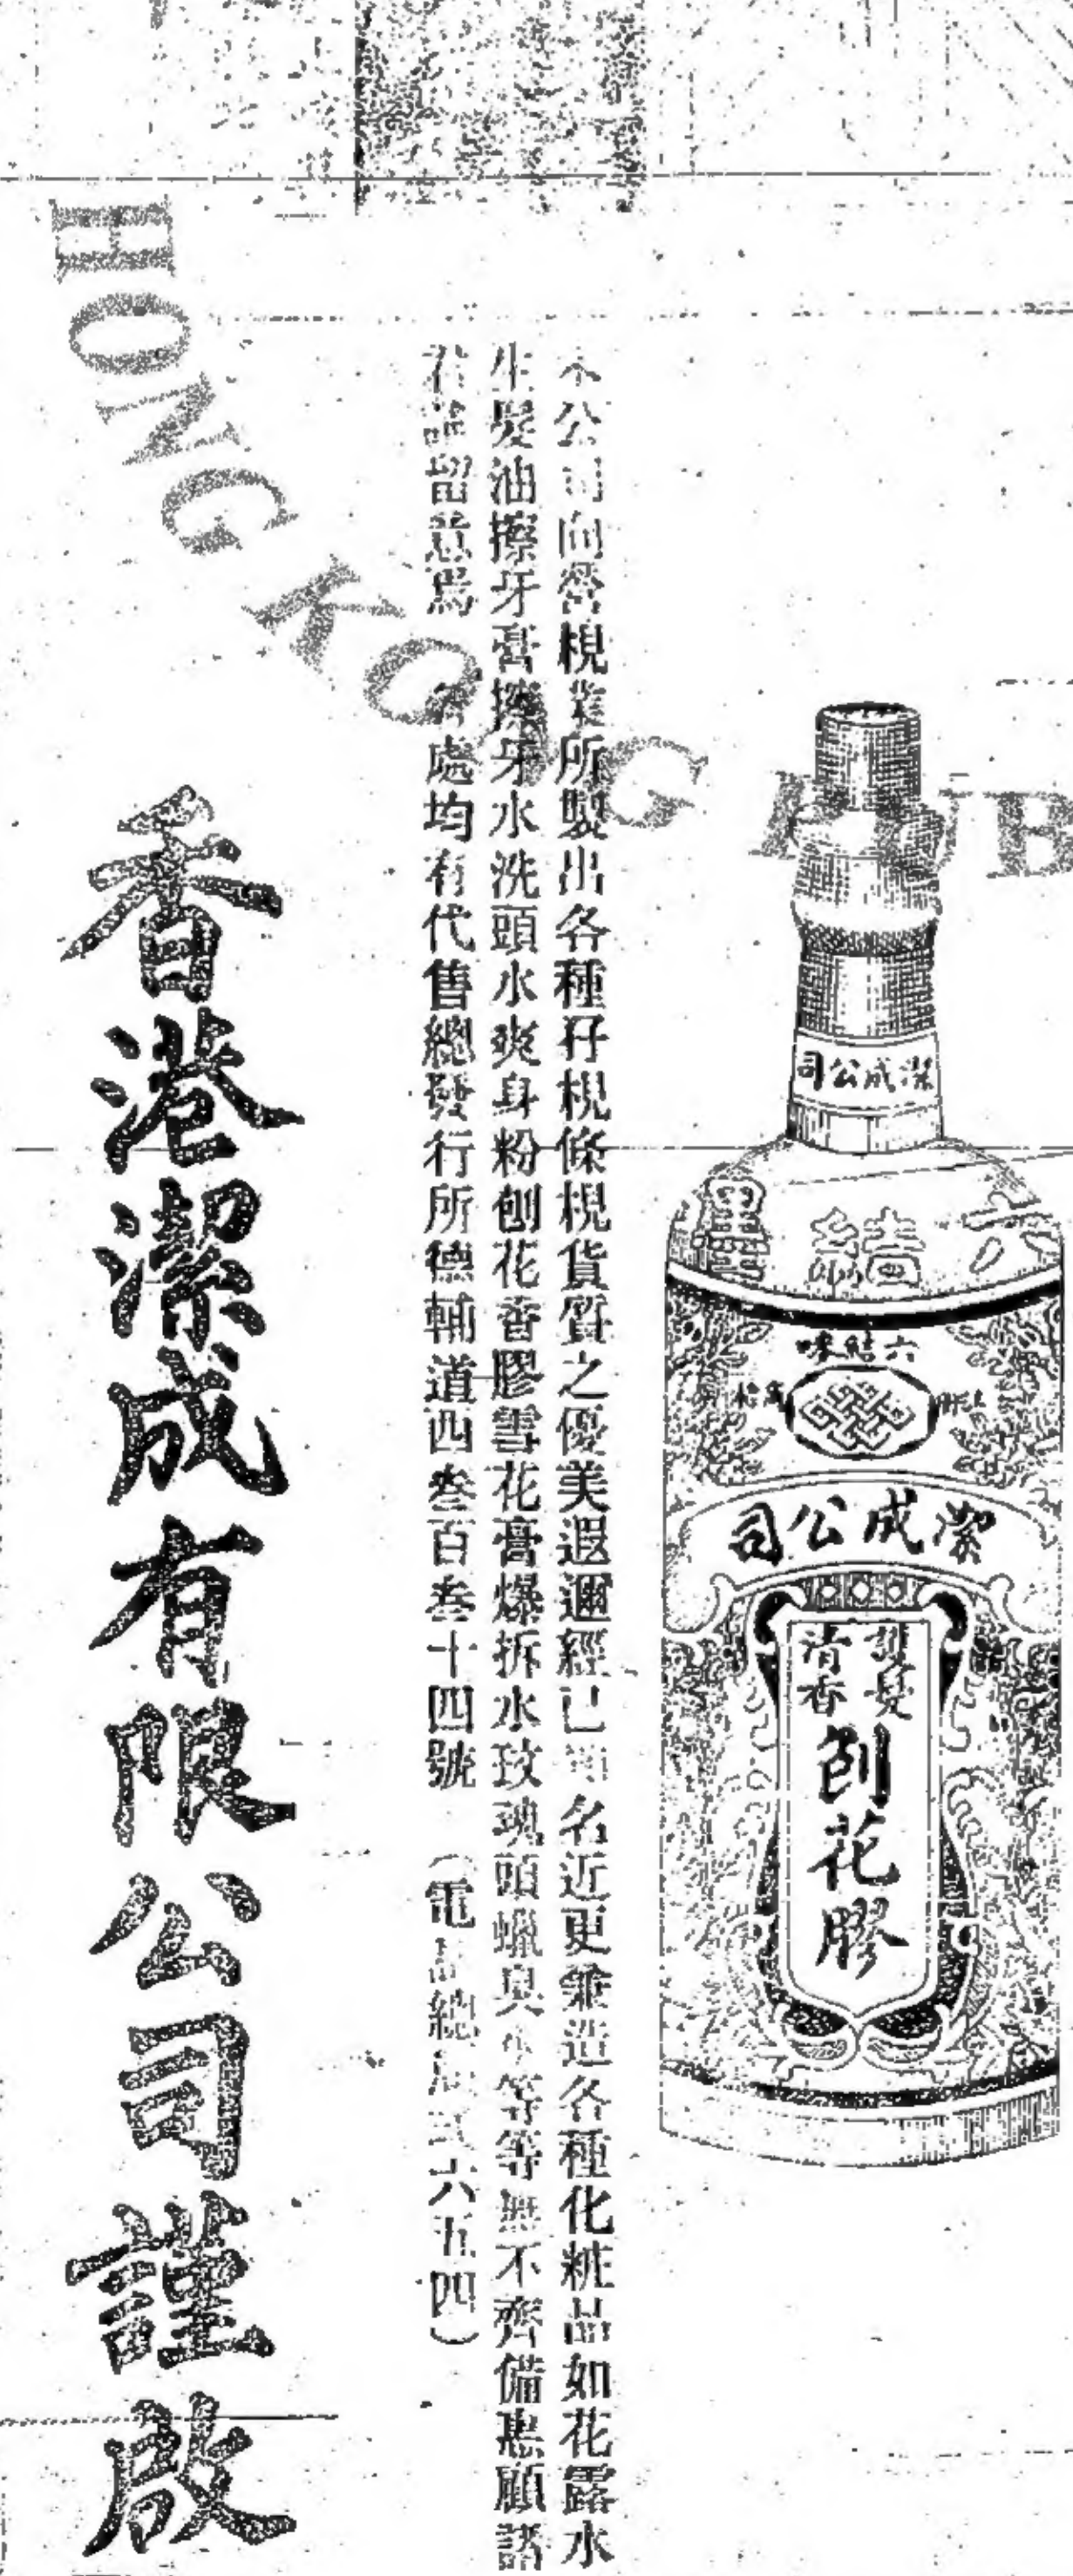 司公成潔
六結墨
六結嚟
司公成潔
護髮
清香
刨花膠
本公司向營梘業所製出各種孖梘條梘貨質之優美遐邇經已 名近更兼造各種化粧品如花露水
生髮油擦牙膏擦牙水洗頭水爽身粉刨花香膠雪花膏爆拆水玫瑰頭蠟臭水等等無不齊備惠顧諸
君請留意焉 各處均有代售總發行所德輔道四叁百叁十四號 (電話總局 六五四)
香港潔成有限公司謹啟
HONG KONG PUB